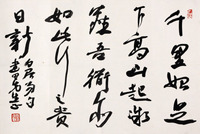 千里始足
下高山起微
塵吾衟亦
如此行之貴
日新